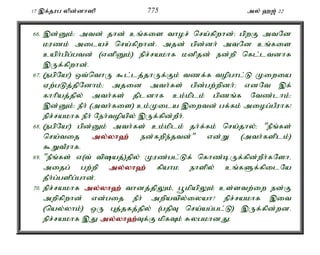 17 இக்தரப லின்னாஸி 775 அல் ஹஜ் 22
66. இன்னும்: அவன் தான் உங்களை வாழச் செய்கிறான்; பிறகு அவனே
மரணம் அடையச் செய்கிறான். அதன் பின்னர் அவனே உங்களை
உயிர்ப்பிப்பவன் (எனினும்) நிச்சயமாக மனிதன் நன்றி கெட்டவனாக
இருக்கின்றான்.
67. (நபியே!) ஒவ்வொரு கூட்டத்தாருக்கும் வணக்க வழிபாட்டு முறையை
ஏற்படுத்தினோம்; அதனை அவர்கள் பின்பற்றினர்; எனவே இக்
காரியத்தில் அவர்கள் திடனாக உம்மிடம் பிணங்க வேண்டாம்;
இன்னும்: நீர் (அவர்களை) உம்முடைய இறைவன் பக்கம் அழைப்பீராக!
நிச்சயமாக நீர் நேர்வழியில் இருக்கின்றீர்.
68. (நபியே!) பின்னும் அவர்கள் உம்மிடம் தர்க்கம் செய்தால்: "நீங்கள்
செய்வதை அல்லாஹ் நன்கறிந்தவன்" என்று (அவர்களிடம்)
கூறுவீராக.
69. "நீங்கள் எ(வ் விஷயத்)தில் முரண்பட்டுக் கொண்டிருக்கின்றீர்களோ,
அதைப் பற்றி அல்லாஹ் கியாம நாளில் உங்களுக்கிடையே
தீர்ப்பளிப்பான்.
70. நிச்சயமாக அல்லாஹ் வானத்திலும், பூமியிலும் உள்ளவற்றை நன்கு
அறிகிறான் என்பதை நீர் அறியவில்லையா? நிச்சயமாக இவை
(யெல்லாம்) ஒரு புத்தகத்தில் (பதிவு செய்யப்பட்டு) இருக்கின்றன.
நிச்சயமாக இது அல்லாஹ்வுக்கு மிகவும் சுலபமானது.